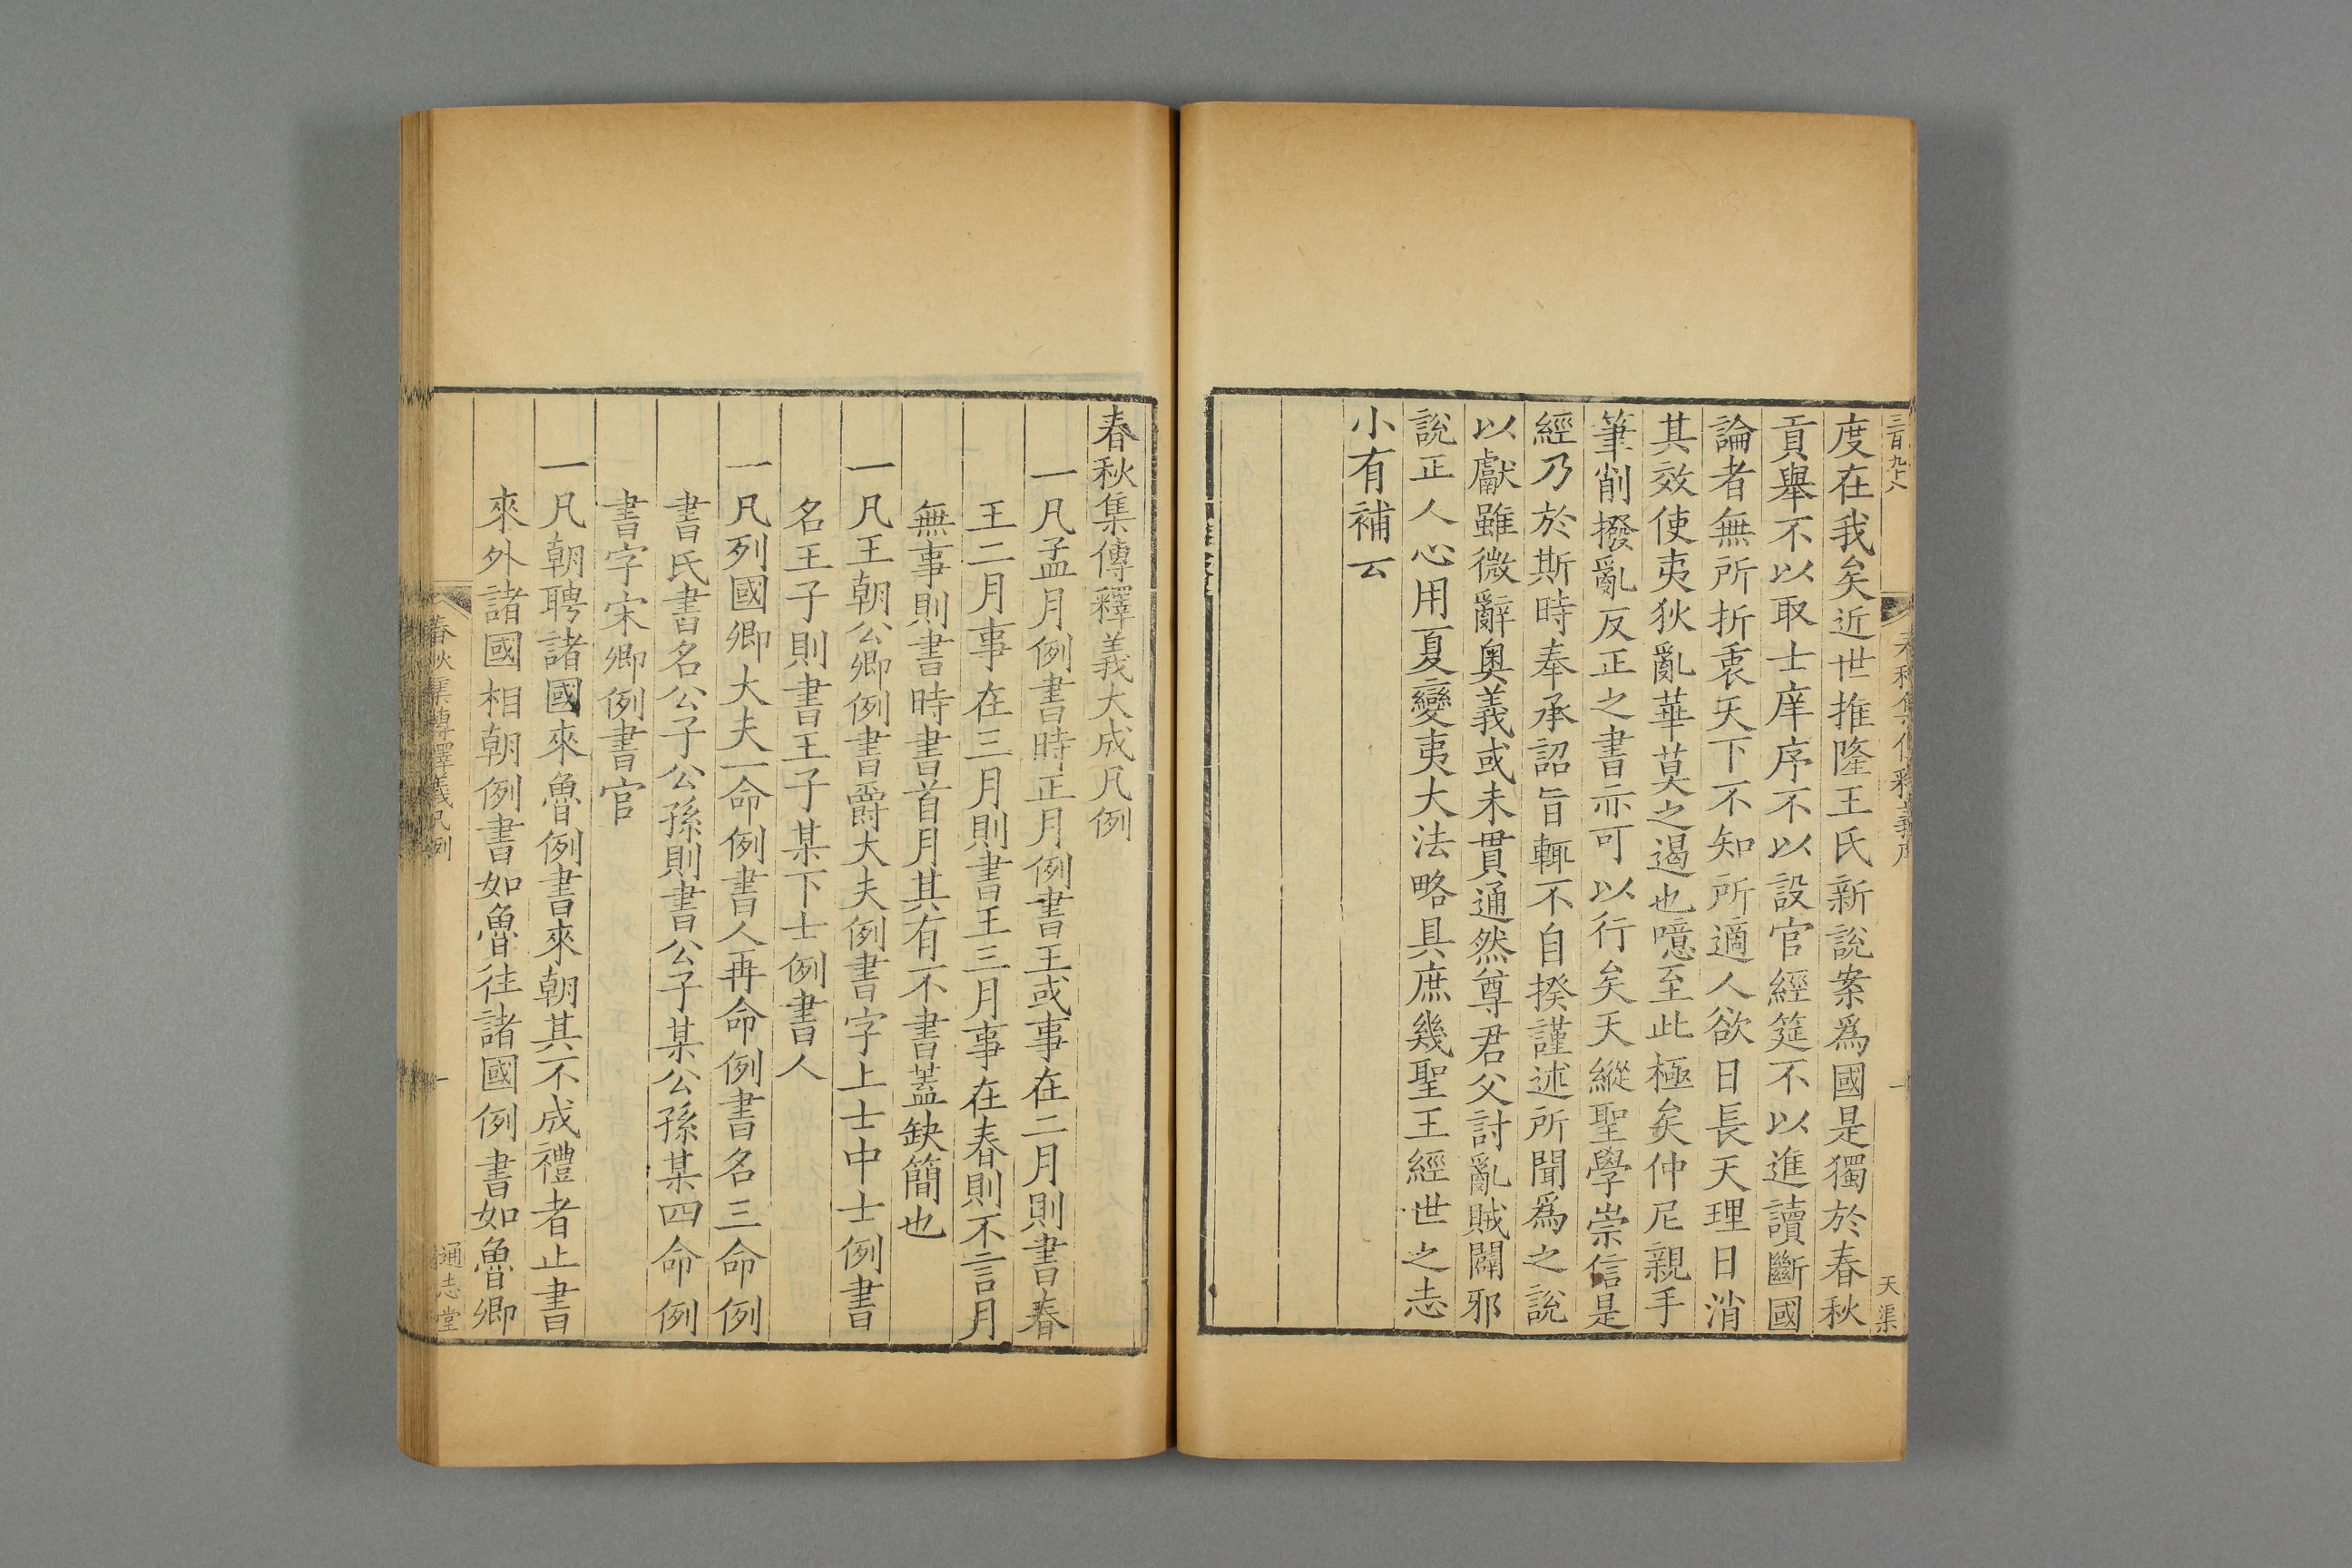 三百九十八
春秋集傳釋義序
一
天渠
度在我矣近世推隆王氏新說案爲國是獨於春秋
貢舉不以取士庠序不以設官經筵不以進讀斷國
論者無所折衷天下不知所適人欲日長天理日消
其效使夷狄亂華莫之遏也噫至此極矣仲尼親手
筆削撥亂反正之書亦可以行矣天縱聖學崇信是
經乃於斯時奉承詔旨輒不自揆謹述所聞爲之說
以獻雖微辭奧義或未貫通然尊君父討亂賊闢邪
說正人心用夏變夷大法略具庶幾聖王經世之志
小有補云
春秋集傳釋義大成凡例
一凡孟月例書時正月例書王或事在二月則書春
王二月事在三月則書王三月事在春則不言月
無事則書時書首月其有不書蓋缺簡也
一凡王朝公卿例書爵大夫例書字上士中士例書
名王子則書王子某下士例書人
一凡列國卿大夫一命例書人再命例書名三命例
書氏書名公子公孫則書公子某公孫某四命例
書字宋卿例書官
一凡朝聘諸國來魯例書來朝其不成禮者止書
來外諸國相朝例書如魯往諸國例書如魯卿
春秋集傳釋義凡例
一
通志堂